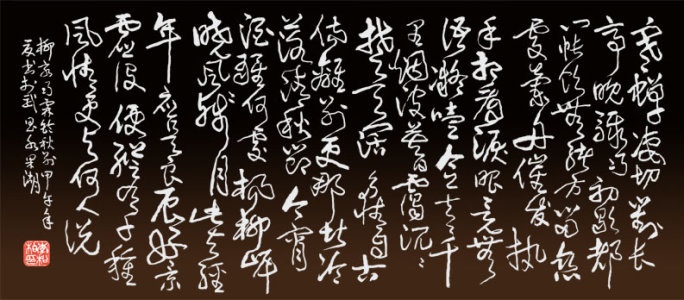 寒蝉凄切对长
亭晚骤雨初歇都
门帐饮无绪方留恋
处兰舟催发执
手相看泪眼竟无
语凝噎念去去千
里烟波暮霭沉沉
楚天阔多情自古
伤离别更那堪冷
落清秋节今宵
酒醒何处杨柳岸
晓风残月此去经
年应是良辰好景
虚设便纵有千种
风情更与何人说
柳永雨霖铃秋别甲午年
夏书于武昌水果湖